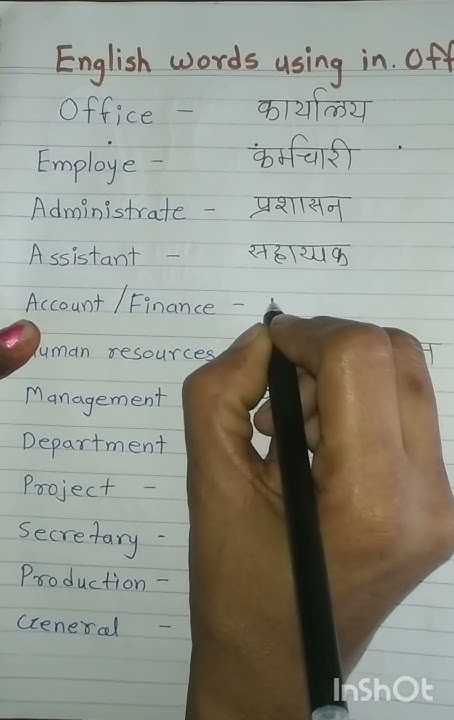 English words using in. Off
Office - कार्यालय
Employe - कंर्मचारी
Administrate - प्रशासन
Assistant - सहाय्यक
Account /Finance -
Human resources न
Management
Department
Project -
Secretary -
Production -
General -
InShOt